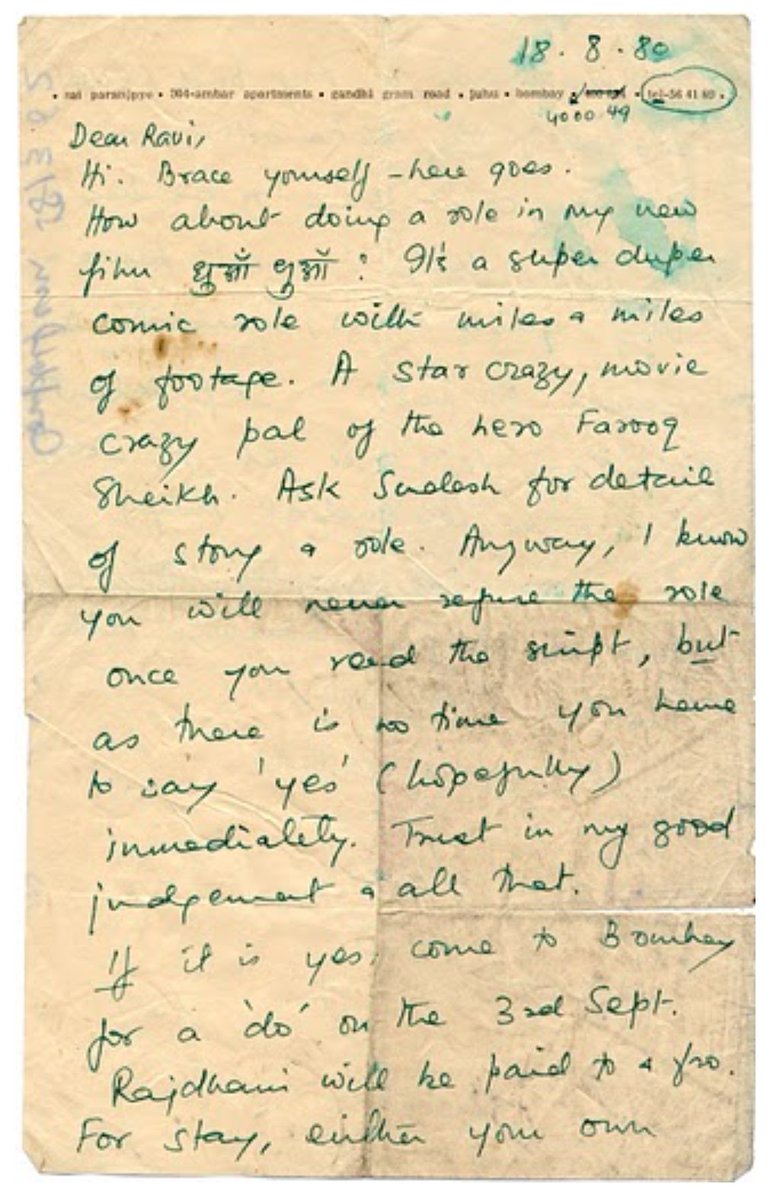 18.8.80
• sai paranjpye • 304-ambar apartments • gandhi gram road • juhu • bombay • tel-56 41 80 •
4000 49
Dear Ravi,
Hi. Brace yourself - here goes.
How about doing a role in my new
film धुआँ धुआँ : It's a super duper
comic role with miles & miles
of footage. A star crazy, movie
crazy pal of the hero Farooq
Sheikh. Ask Sudesh for detail
of story & role. Anyway, I know
you will never refuse the role
once you read the script, but
as there is no time you have
to say 'yes' (hopefully)
immediately. Trust in my good
judgement & all that.
If it is yes, come to Bombay
for a 'do' on the 3rd Sept.
Rajdhani will be paid to & fro.
For stay, either your own